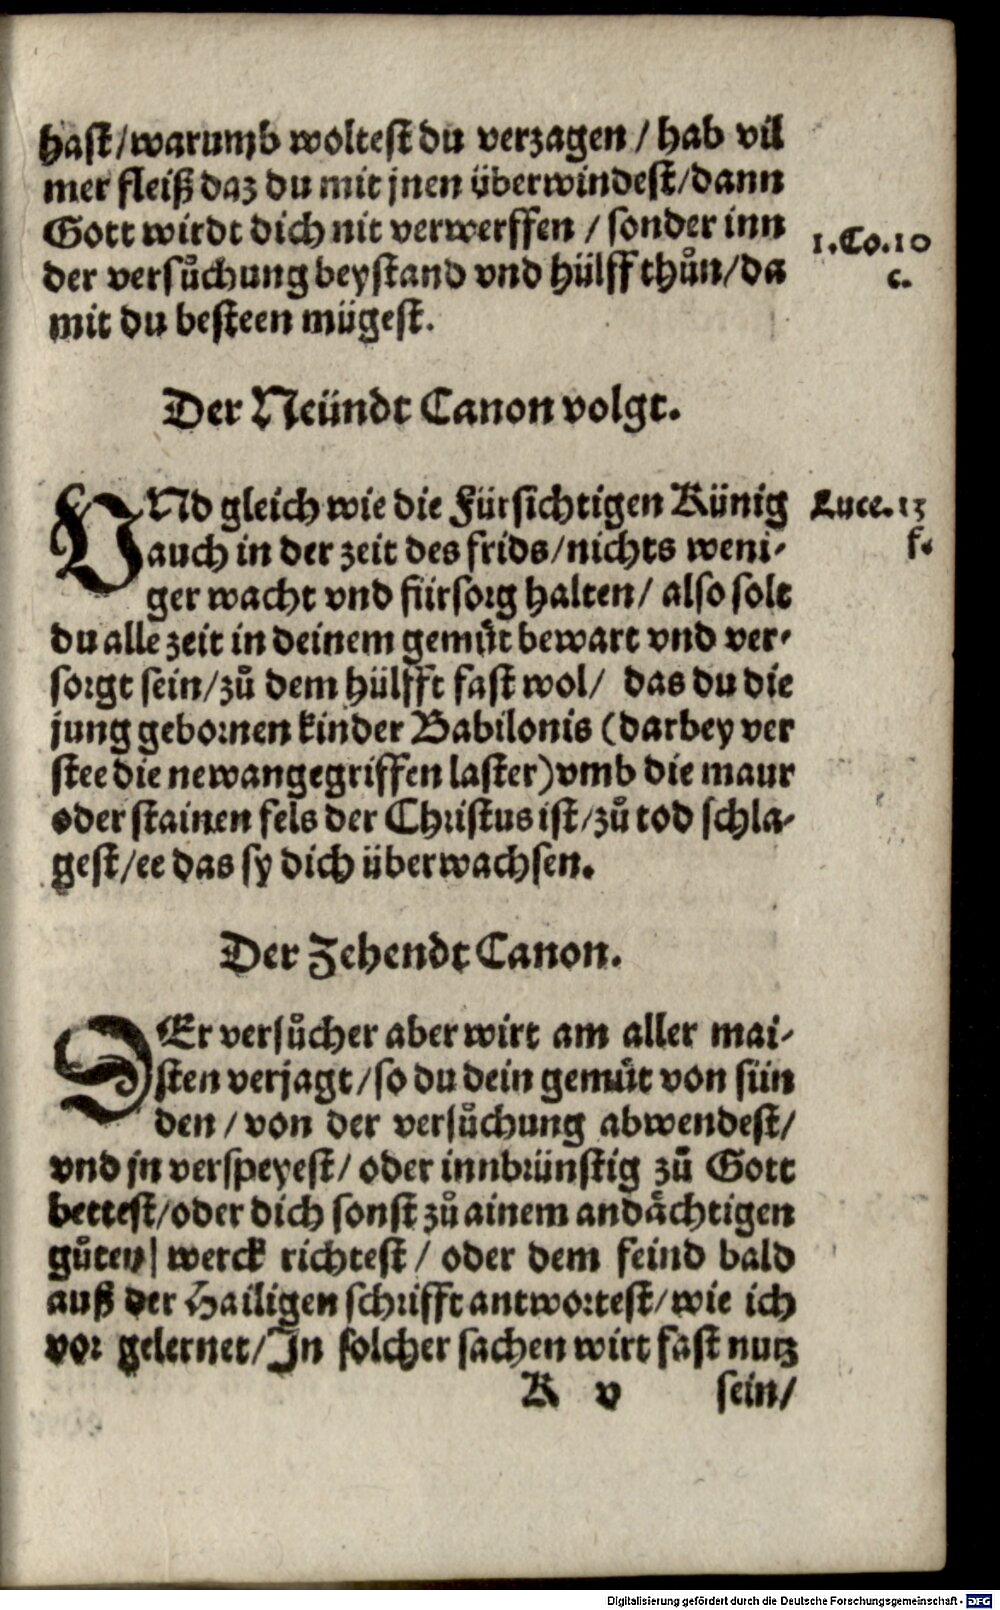 hast/warumb woltest du verzagen / hab vil
mer fleiß daz du mit jnen überwindest/dann
Gott wirdt dich nit verwerffen / sonder inn
1.Co.10
der versůchung beystand vnd hülff thůn/da
c.
mit du besteen mügest.
Der Neündt Canon volgt.
VNd gleich wie die Fürsichtigen Künig
Luce.13
auch in der zeit des frids/nichts weni-
f.
ger wacht vnd fürsorg halten/ also solt
du alle zeit in deinem gemüt bewart vnd ver-
sorgt sein/zů dem hülfft fast wol/ das du die
jung gebornen kinder Babilonis (darbey ver
stee die newangegriffen laster)vmb die maur
oder stainen fels der Christus ist/zů tod schla-
gest/ee das sy dich überwachsen.
Der Zehendt Canon.
DEr versůcher aber wirt am aller mai-
sten verjagt/so du dein gemüt von sün
den/von der versůchung abwendest/
vnd jn verspeyest/ oder innbrünstig zů Gott
bettest/oder dich sonst zů ainem andächtigen
gůten werck richtest/ oder dem feind bald
auß der Hailigen schrifft antwortest/wie ich
vor gelernet/Jn solcher sachen wirt fast nutz
K v sein/
Digitalisierung gefördert durch die Deutsche Forschungsgemeinschaft - DFG